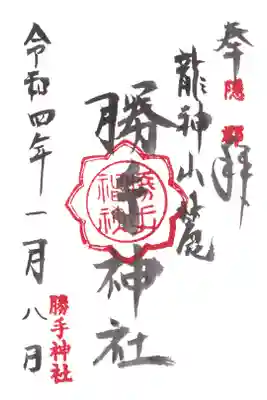 奉拝
隠郷
龍神山麓
勝手神社
令和四年一月八日
勝手神社